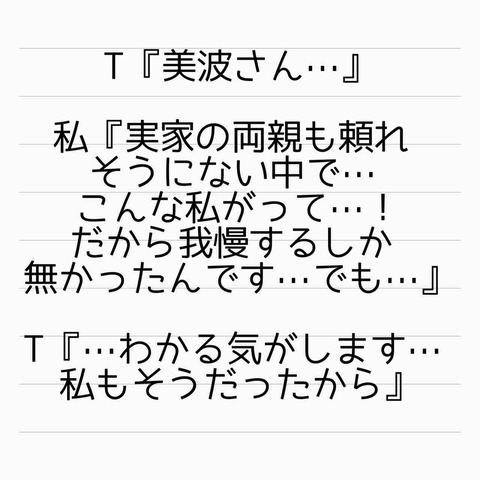 T『美波さん…』
私『実家の両親も頼れ
そうにない中で…
こんな私がって…！
だから我慢するしか
無かったんです…でも…』
T『…わかる気がします…
私もそうだったから』